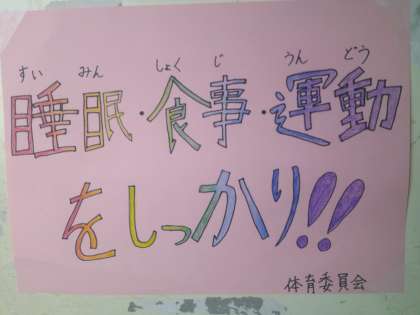 すい みん しょく じ うん どう
睡眠・食事・運動
をしっかり!!
体育委員会